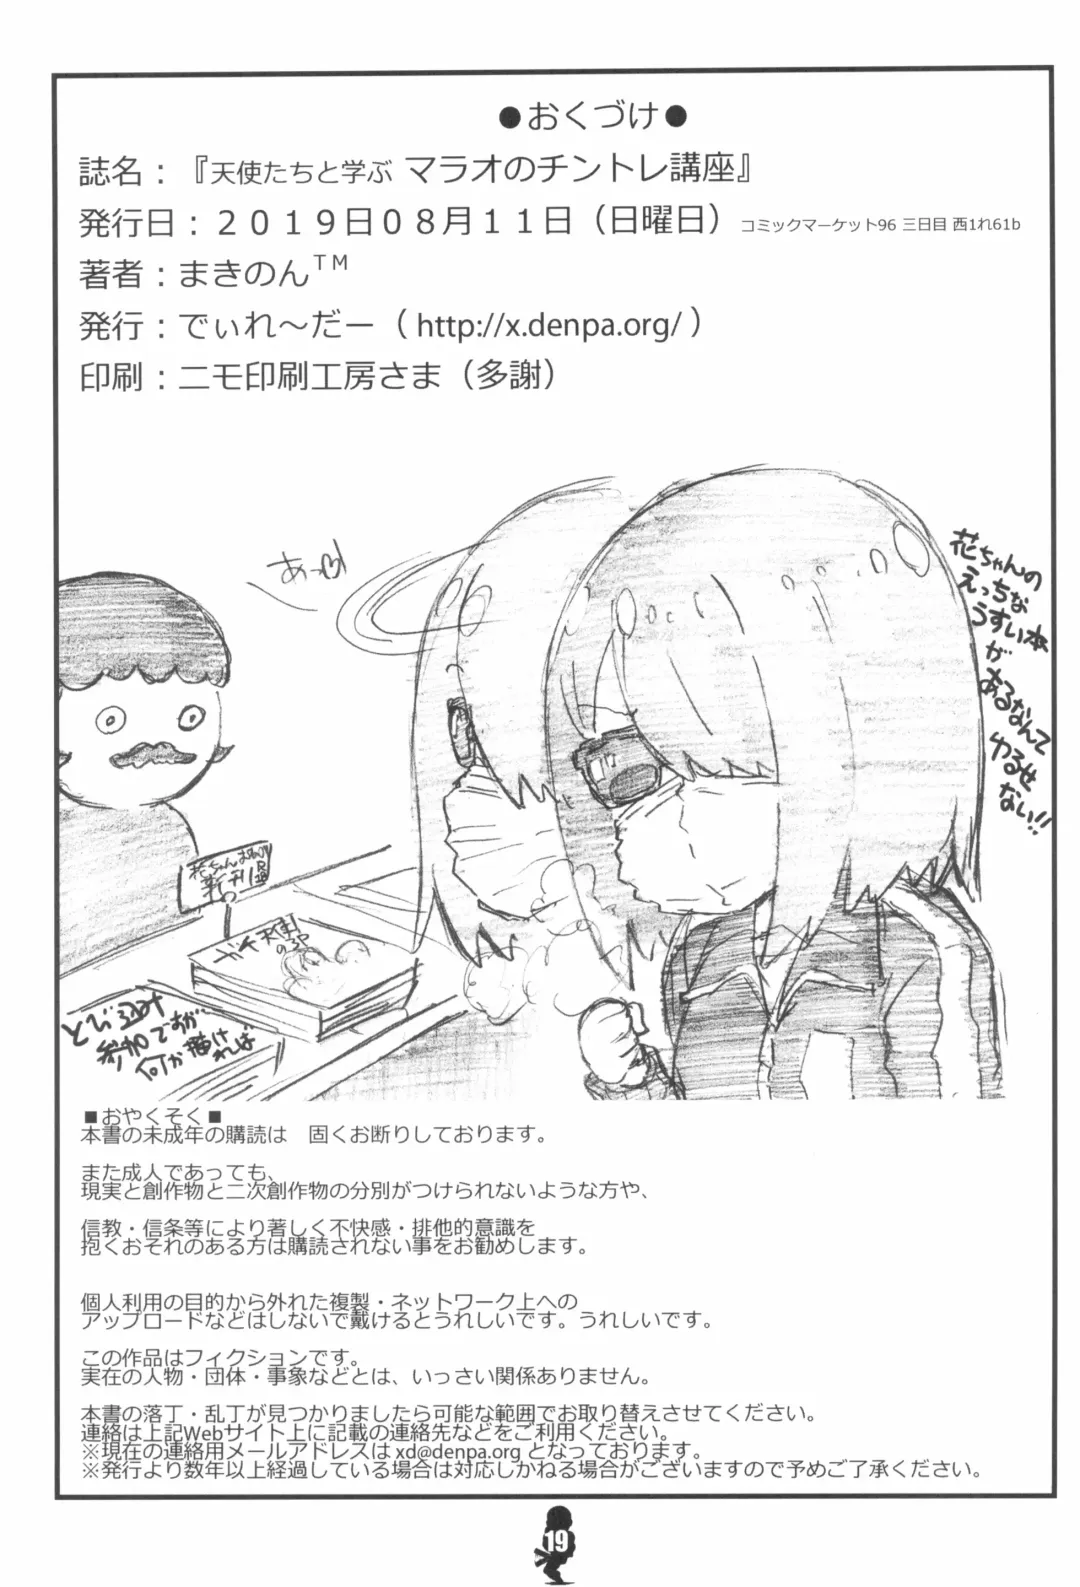 ●おくづけ●
誌名：『天使たちと学ぶ マラオのチントレ講座』
発行日：２０１９日０８月１１日（日曜日）コミックマーケット96 三日目 西1れ61b
著者：まきのん™
発行：でぃれ～だー（ http://x.denpa.org/ ）
印刷：ニモ印刷工房さま（多謝）
あっ
花ちゃんの
えっちな
うすい本
が
あるなんて
ゆるせ
ない!!
花ちゃん
新刊
天使
の3P
とび込み
参加ですが
何か描ければ
■おやくそく■
本書の未成年の購読は　固くお断りしております。
また成人であっても、
現実と創作物と二次創作物の分別がつけられないような方や、
信教・信条等により著しく不快感・排他的意識を
抱くおそれのある方は購読されない事をお勧めします。
個人利用の目的から外れた複製・ネットワーク上への
アップロードなどはしないで戴けるとうれしいです。うれしいです。
この作品はフィクションです。
実在の人物・団体・事象などとは、いっさい関係ありません。
本書の落丁・乱丁が見つかりましたら可能な範囲でお取り替えさせてください。
連絡は上記Webサイト上に記載の連絡先などをご利用ください。
※現在の連絡用メールアドレスは xd@denpa.org となっております。
※発行より数年以上経過している場合は対応しかねる場合がございますので予めご了承ください。
19